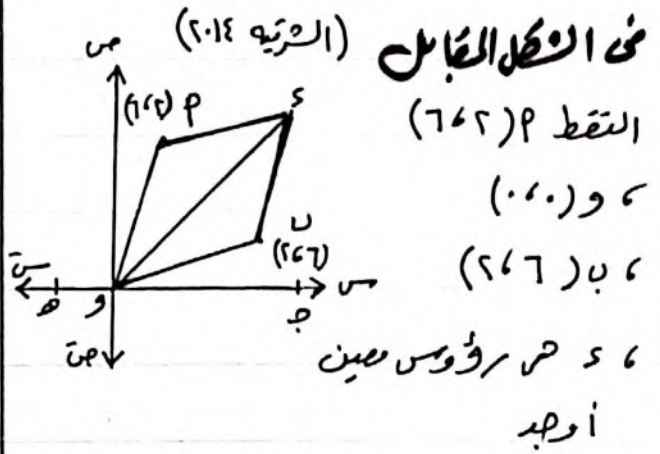 فى الشكل المقابل (الشرقيه ٢٠١٤)
النقط م (٢، ٦)
، و (٠، ٠)
، ب (٦، ٢)
، ء هى رؤوس معين
أوجد
ص
م (٢، ٦)
ء
ب
(٦، ٢)
س
جـ
و
هـ
سَ
صَ